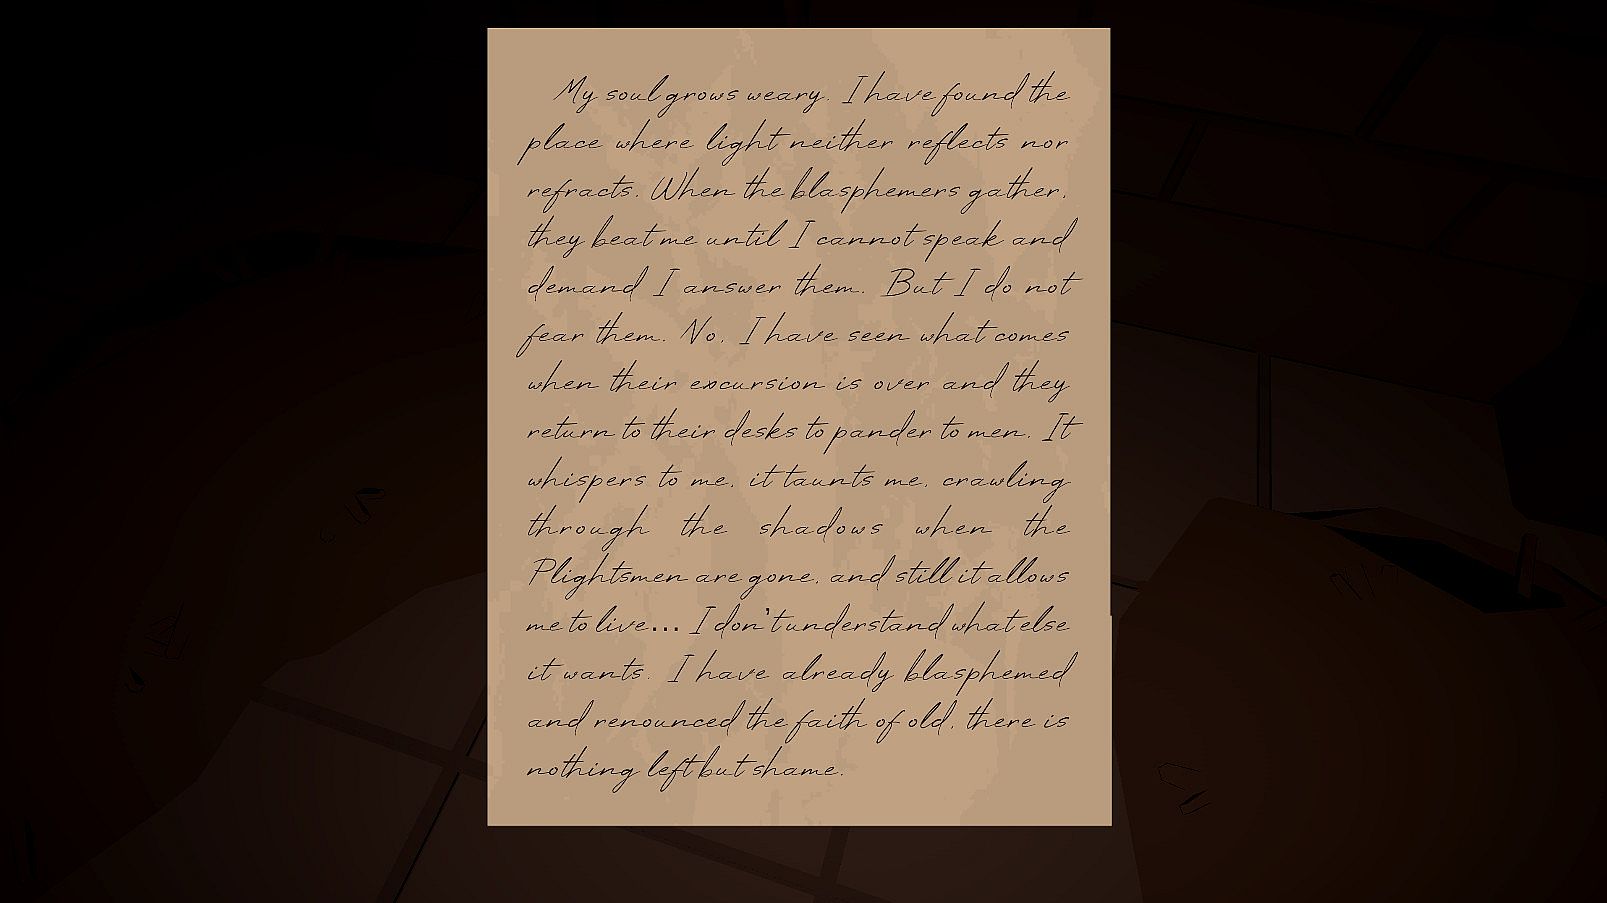 My soul grows weary. I have found the
place where light neither reflects nor
refracts. When the blasphemers gather,
they beat me until I cannot speak and
demand I answer them. But I do not
fear them. No, I have seen what comes
when their excursion is over and they
return to their desks to pander to men. It
whispers to me, it taunts me, crawling
through the shadows when the
Plightsmen are gone, and still it allows
me to live... I don't understand what else
it wants. I have already blasphemed
and renounced the faith of old, there is
nothing left but shame.